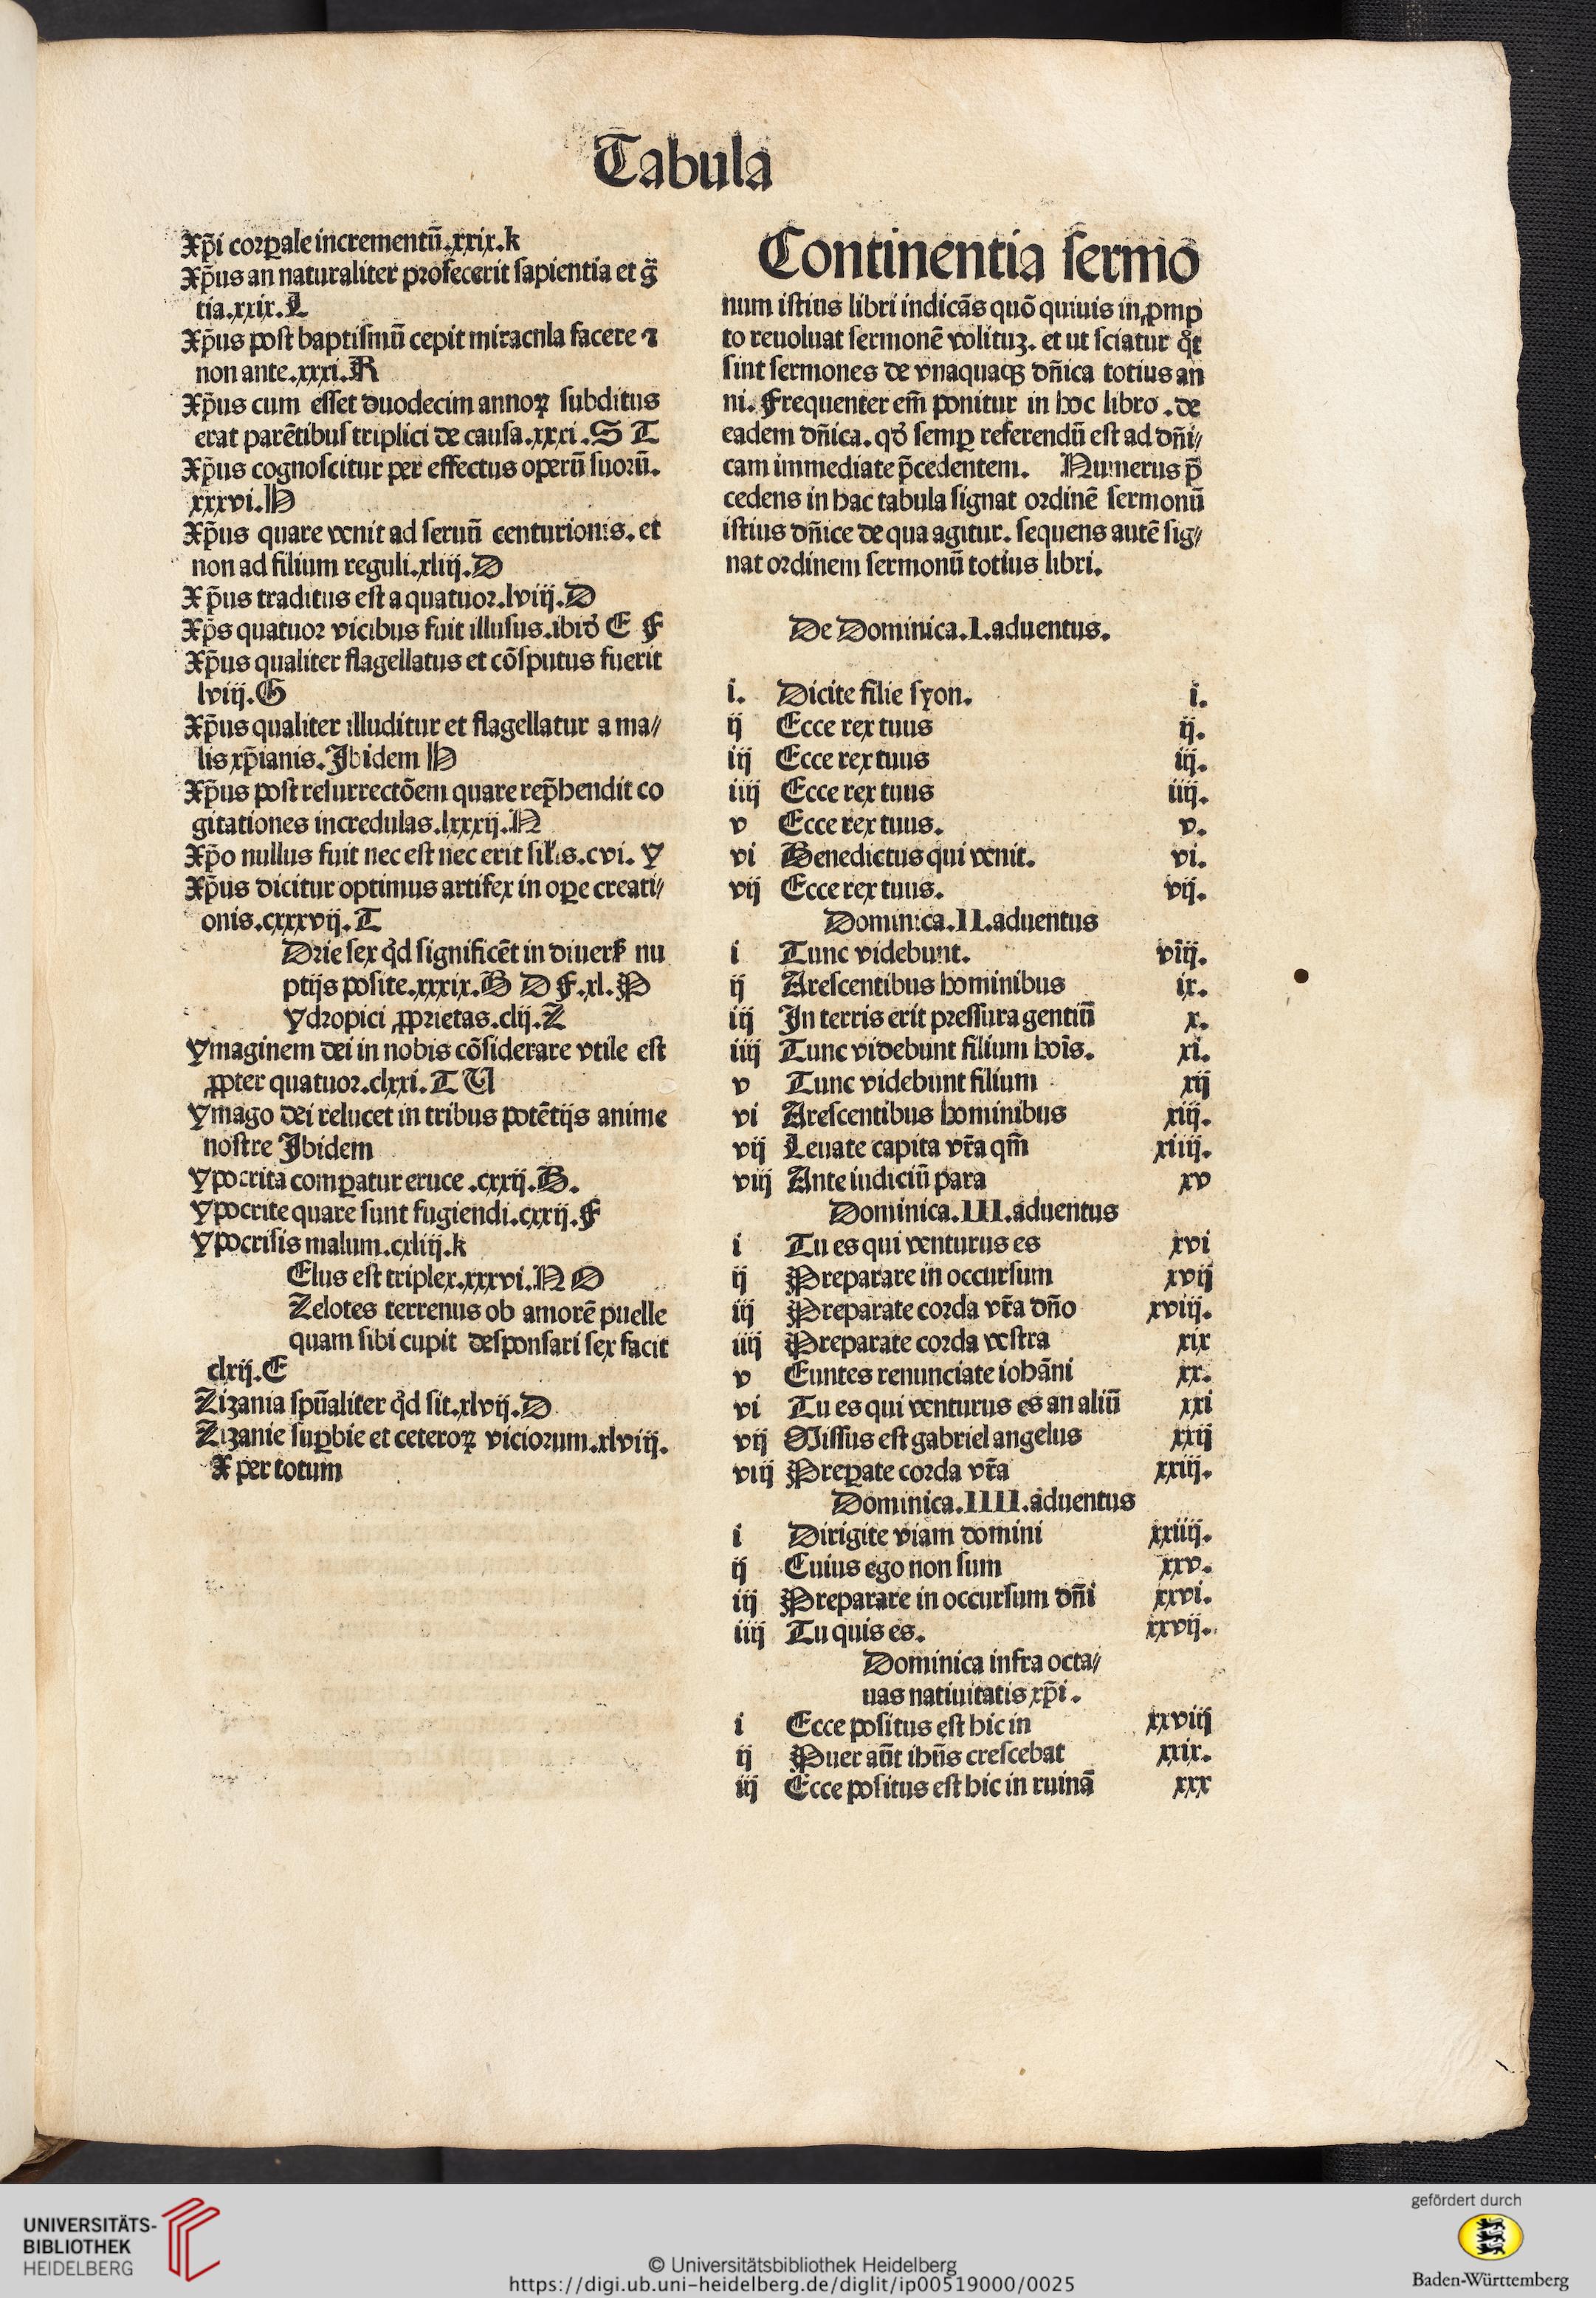 Tabula
Xp̄i corꝑale incrementū.xxix.k
Xp̄us an naturaliter profecerit sapientia et g̈
tia.xxix.L
Xp̄us post baptismū cepit miracnla facere ⁊
non ante.xxxi.R
Xp̄us cum esset duodecim annoꝝ subditus
erat parētibus triplici de causa.xxxi.S T
Xp̄us cognoscitur per effectus operū suorū.
xxxvi.H
Xp̄us quare venit ad seruū centurionis. et
non ad filium reguli.xliij.D
Xp̄us traditus est a quatuor.lviij.D
Xp̄s quatuor vicibus fuit illusus.ibid̕ E F
Xp̄us qualiter flagellatus et cōsputus fuerit
lviij.G
Xp̄us qualiter illuditur et flagellatur a ma⸗
lis xp̄ianis.Ibidem H
Xp̄us post resurrectōem quare rep̄hendit co
gitationes incredulas.lxxxij.N
Xp̄o nullus fuit nec est nec erit sil̕is.cvi. Y
Xp̄us dicitur optimus artifex in oꝑe creati⸗
onis.cxxxvij.T
Drie sex qd̕ significēt in diuers̕ nu
ptijs posite.xxxix.B D F.xl.P
Ydropici ꝓprietas.clij.Z
Ymaginem dei in nobis cōsiderare vtile est
ꝓpter quatuor.clxxi.T U
Ymago dei relucet in tribus potētijs anime
nostre Ibidem
Ypocrita comꝑatur eruce.cxxij.B.
Ypocrite quare sunt fugiendi.cxxij.F
Ypocrisis malum.cxliij.k
Elus est triplex.xxxvi.N O
Zelotes terrenus ob amorē puelle
quam sibi cupit desponsari sex facit
clxij.E
Zizania spūaliter qd̕ sit.xlvij.D
Zizanie suꝑbie et ceteroꝝ viciorum.xlviij.
X per totum
Continentia sermo
num istius libri indicās quō quiuis in ꝓmp
to reuoluat sermonē volituꝫ. et ut sciatur qͦt
sint sermones de vnaquaqꝫ dn̄ica totius an
ni. Frequenter em̄ ponitur in hoc libro .de
eadem dn̄ica. qd̕ semꝑ referendū est ad dn̄i⸗
cam immediate p̄cedentem. Numerus p̄
cedens in hac tabula signat ordinē sermonū
istius dn̄ice de qua agitur. sequens autē sig⸗
nat ordinem sermonū totius libri.
De Dominica.I.aduentus.
i. Dicite filie syon. i.
ij Ecce rex tuus ij.
iij Ecce rex tuus iij.
iiij Ecce rex tuus iiij.
v Ecce rex tuus. v.
vi Benedictus qui venit. vi.
vij Ecce rex tuus. vij.
Dominica.II.aduentus
i Tunc videbunt. viij.
ij Arescentibus hominibus ix.
iij In terris erit pressura gentiū x.
iiij Tunc videbunt filium hoīs. xi.
v Tunc videbunt filium xij
vi Arescentibus hominibus xiij.
vij Leuate capita vr̄a qm̄ xiiij.
viij Ante iudiciū para xv
Dominica.III.aduentus
i Tu es qui venturus es xvi
ij Preparare in occursum xvij
iij Preparate corda vr̄a dn̄o xviij.
iiij Preparate corda vestra xix
v Euntes renunciate iohāni xx.
vi Tu es qui venturus es an aliū xxi
vij Missus est gabriel angelus xxij
viij Preꝑate corda vr̄a xxiij.
Dominica.IIII.aduentus
i Dirigite viam domini xxiiij.
ij Cuius ego non sum xxv.
iij Preparare in occursum dn̄i xxvi.
iiij Tu quis es. xxvij.
Dominica infra octa⸗
uas natiuitatis xp̄i.
i Ecce positus est hic in xxviij
ij Puer aūt ihūs crescebat xxix.
iij Ecce positus est hic in ruinā xxx
UNIVERSITÄTS-
BIBLIOTHEK
HEIDELBERG
© Universitätsbibliothek Heidelberg
https://digi.ub.uni-heidelberg.de/diglit/ip00519000/0025
gefördert durch
Baden-Württemberg